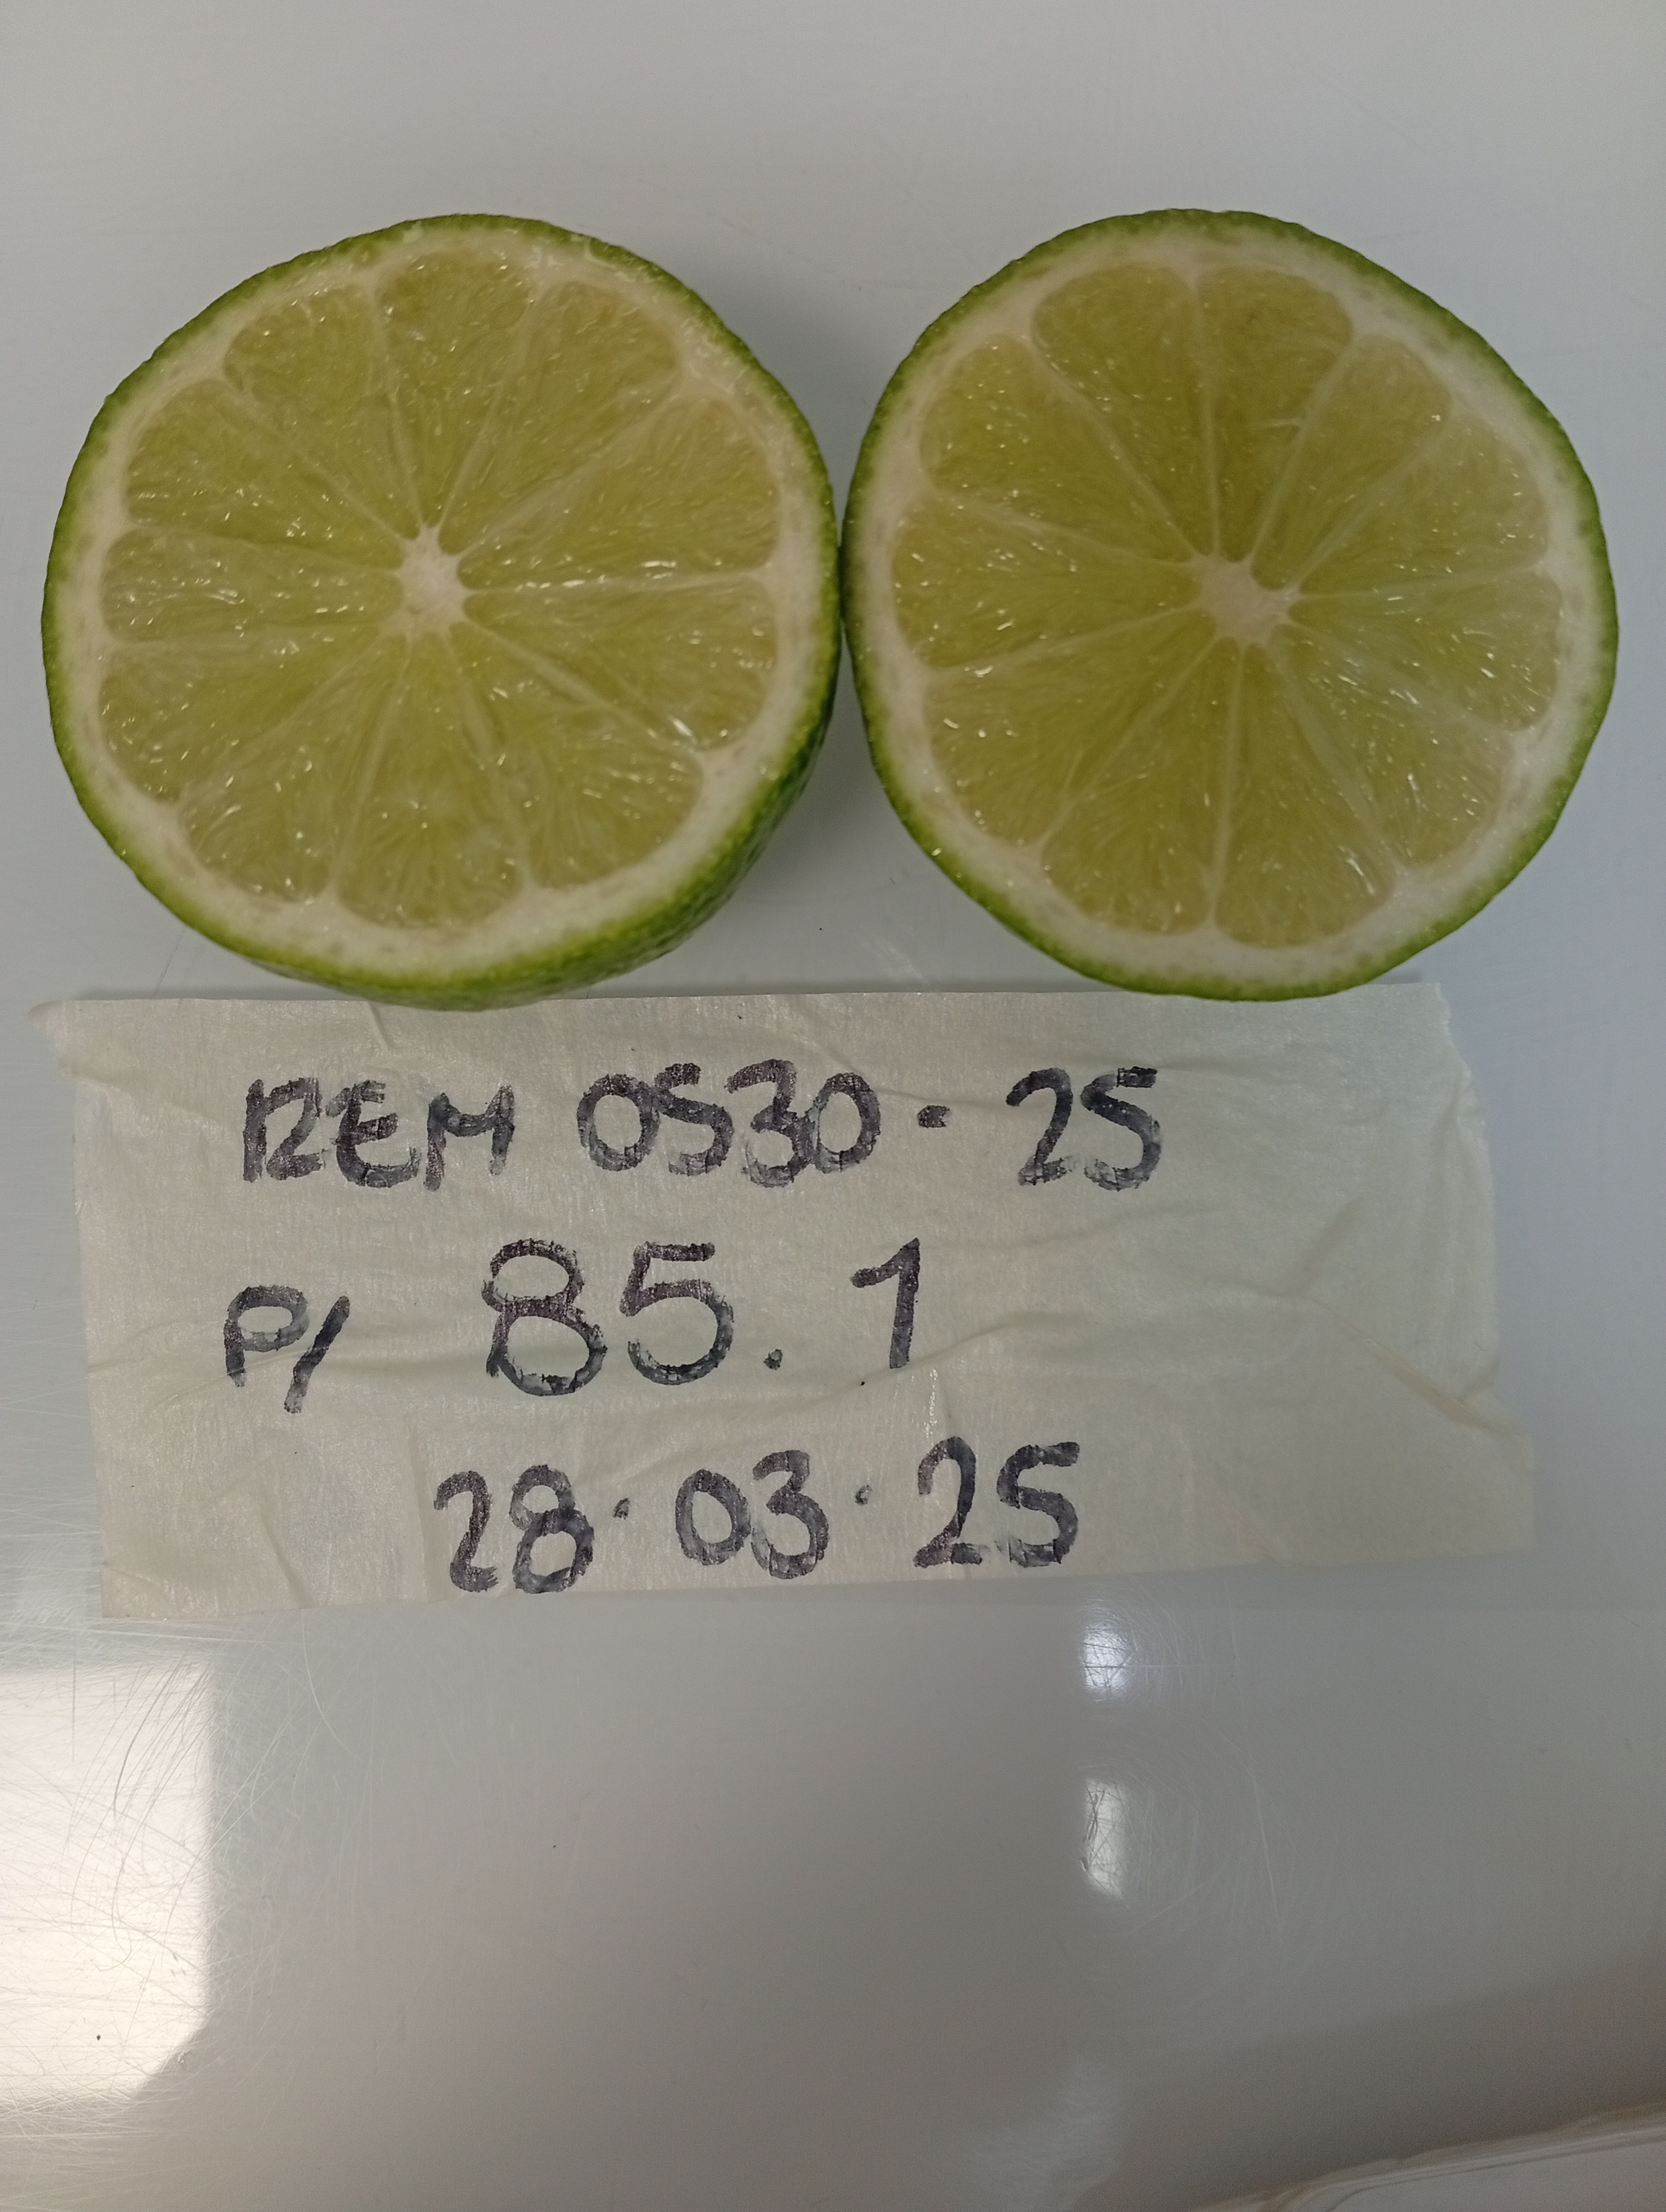 REM 0530-25
P/ 85.1
28.03.25